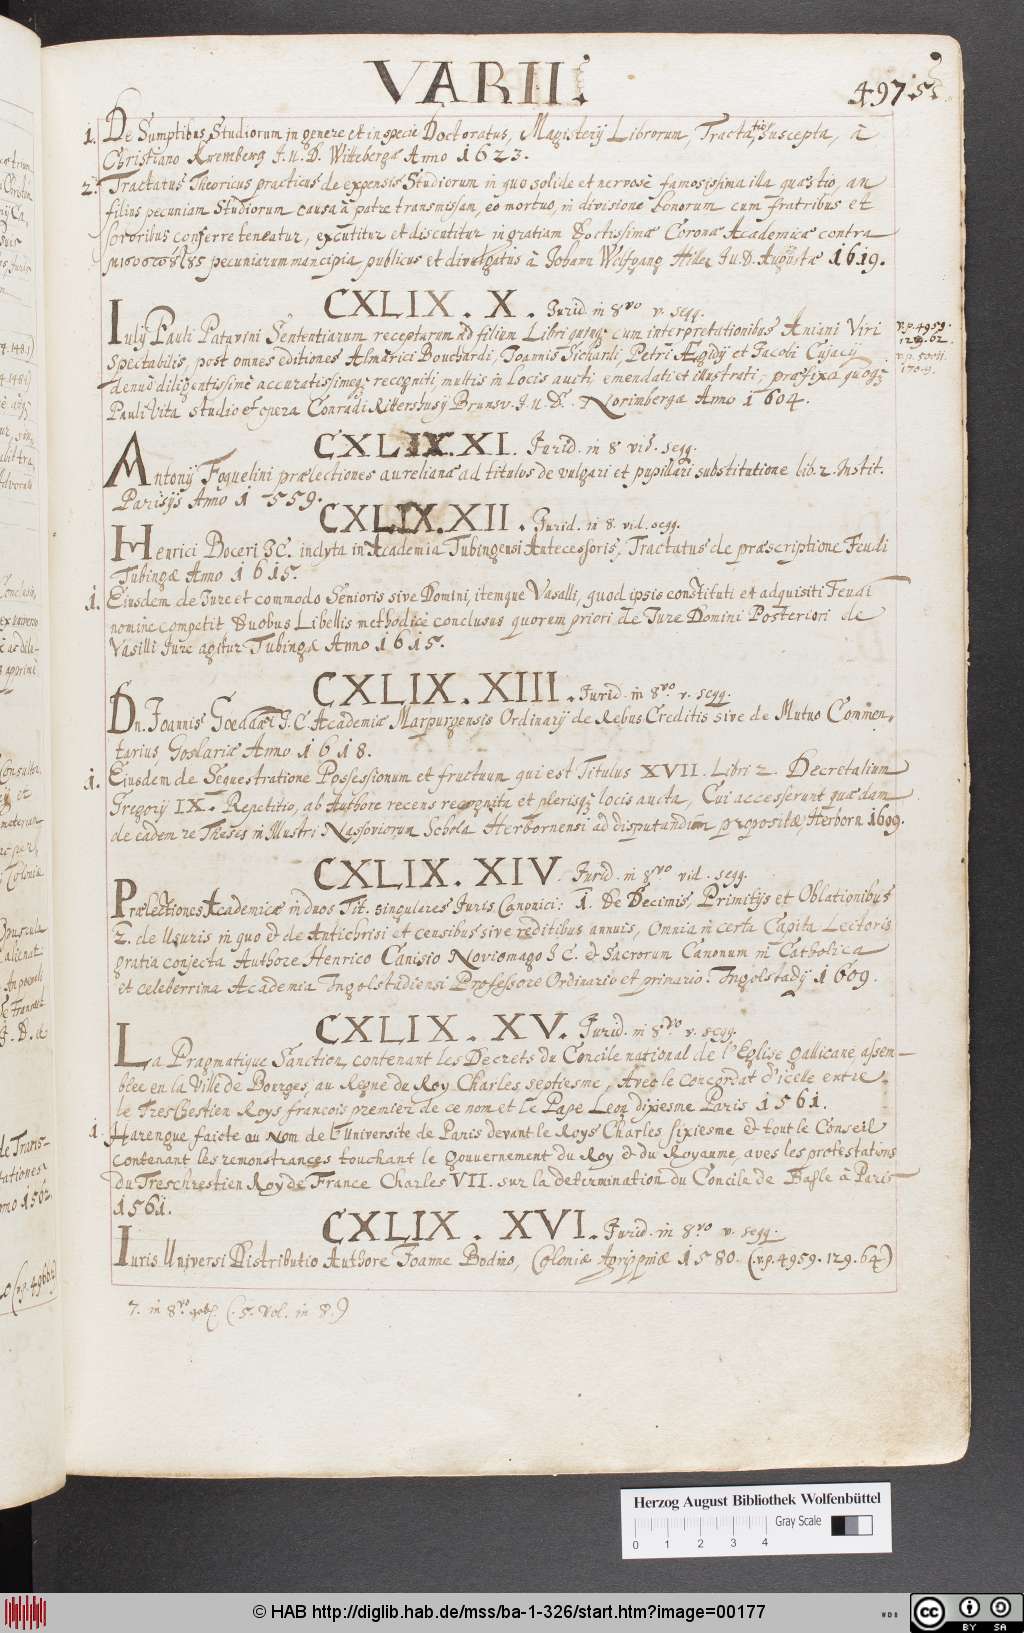 VARII.
4975.
1. De Sumptibus Studiorum jn genere et in specie Doctoratus, Magisterij Librorum, Tractatio suscepta, à
Christiano Kremberg J. U. D. Wittebergæ Anno 1623.
2. Tractatus Theoricus practicus de expensis Studiorum in quo solide et nervosè famosissima illa quæstio, an
filius pecuniam Studiorum causa à patre transmissam, eo mortuo, in divisione bonorum cum fratribus et
sororibus conferre teneatur, excutitur et discutitur in gratiam Doctissimæ Coronæ Academicæ contra
pecuniarum mancipia publicus et divulgatus à Johann Wolfgang Hiller J. U. D. Augustæ 1619.
CXLIX. X. Jurid. in 8vo v. seqq.
Iulij Pauli Patavini Sententiarum receptarum ad filium Libri quinq; cum interpretationibus Aniani Viri
v. p. 4959.
129. 62.
Spectabilis, post omnes editiones Almerici Bouchardi, Joannis Sichardi, Petri Ægidij et Jacobi Cujacij
v. p. 5001.
1704.
denuò diligentissimè accuratissimeq; recogniti, multis in Locis aucti, emendati et illustrati, præfixa quoq;
Pauli Vita studio et opera Conradi Rittershusij Brunsv. J. U. D. Norimbergæ Anno 1604.
CXLIX. XI. Jurid. in 8 vid. seqq.
Antonij Foquelini prælectiones aurelianæ ad titulos de vulgari et pupillari substitutione lib. 2. Instit.
Parisijs Anno 1559.
CXLIX. XII. Jurid. in 8. vid. seqq.
Henrici Boceri JC. inclyta in Academia Tubingensi Antecessoris, Tractatus de præscriptione Feudi
Tubingæ Anno 1615.
1. Eiusdem de Jure et commodo Senioris sive Domini, itemque Vasalli, quod ipsis constituti et adquisiti Feudi
nomine competit Duobus Libellis methodicè conclusus quorum priori de Jure Domini Posteriori de
Vasilli Jure agitur Tubingæ Anno 1615.
CXLIX. XIII. Jurid. in 8vo v. seqq.
Dn. Joannis Goeddæi J. C. Academiæ Marpurgensis Ordinarij de Rebus Creditis sive de Mutuo Commen,
tarius, Goslariæ Anno 1618.
1. Eiusdem de Sequestratione Possessionum et fructuum qui est Titulus XVII. Libri 2. Decretalium
Gregorij IX. Repetitio, ab Authore recens recognita et plerisq; locis aucta, Cui accesserunt quædam
de eadem re Theses in Illustri Nassoviorum Schola Herbornensi ad disputandum propositæ, Herborn 1609.
CXLIX. XIV. Jurid. in 8vo vid. seqq.
Prælectiones Academicæ in duos Tit. singulares Juris Canonici: 1. De Decimis Primitijs et Oblationibus
2. de Usuris in quo & de Antichrisi et censibus sive reditibus annuis, Omnia in certa Capita Lectoris
gratia conjecta Authore Henrico Canisio Noviomago J C. & Sacrorum Canonum in Catholica
et celeberrima Academia Ingolstadiensi Professore Ordinario et primario. Ingolstadij 1609.
CXLIX. XV. Jurid. in 8vo v. seqq.
La Pragmatique Sanction, contenant les Decrets du Concile national de l'Eglise gallicane, assem-
blee en la Ville de Bourges, au Regne du Roy Charles septiesme, Avec le concordat d'icelle entre
le TresChestien Roys francois premier de ce nom et le Pape Leon dixesme Paris 1561.
1. Harengue faicte au Nom de l'Universite de Paris devant le Roys Charles sixiesme & tout le Conseil
contenant les remonstrances touchant le gouvernement du Roy & du Royaume, aves les protestations
du Treschrestien Roy de France Charles VII. sur la determination du Concile de Basle à Paris
1561.
CXLIX. XVI. Jurid. in 8vo v. seqq.
Iuris Universi Distributio Authore Joanne Bodino, Coloniæ Agrippinæ 1580. (v. p. 4959. 129. 64)
7. in 8vo (. 5. Vol. in 8.)
Herzog August Bibliothek Wolfenbüttel
Gray Scale
0 1 2 3 4
© HAB http://diglib.hab.de/mss/ba-1-326/start.htm?image=00177
WDB
CC BY SA